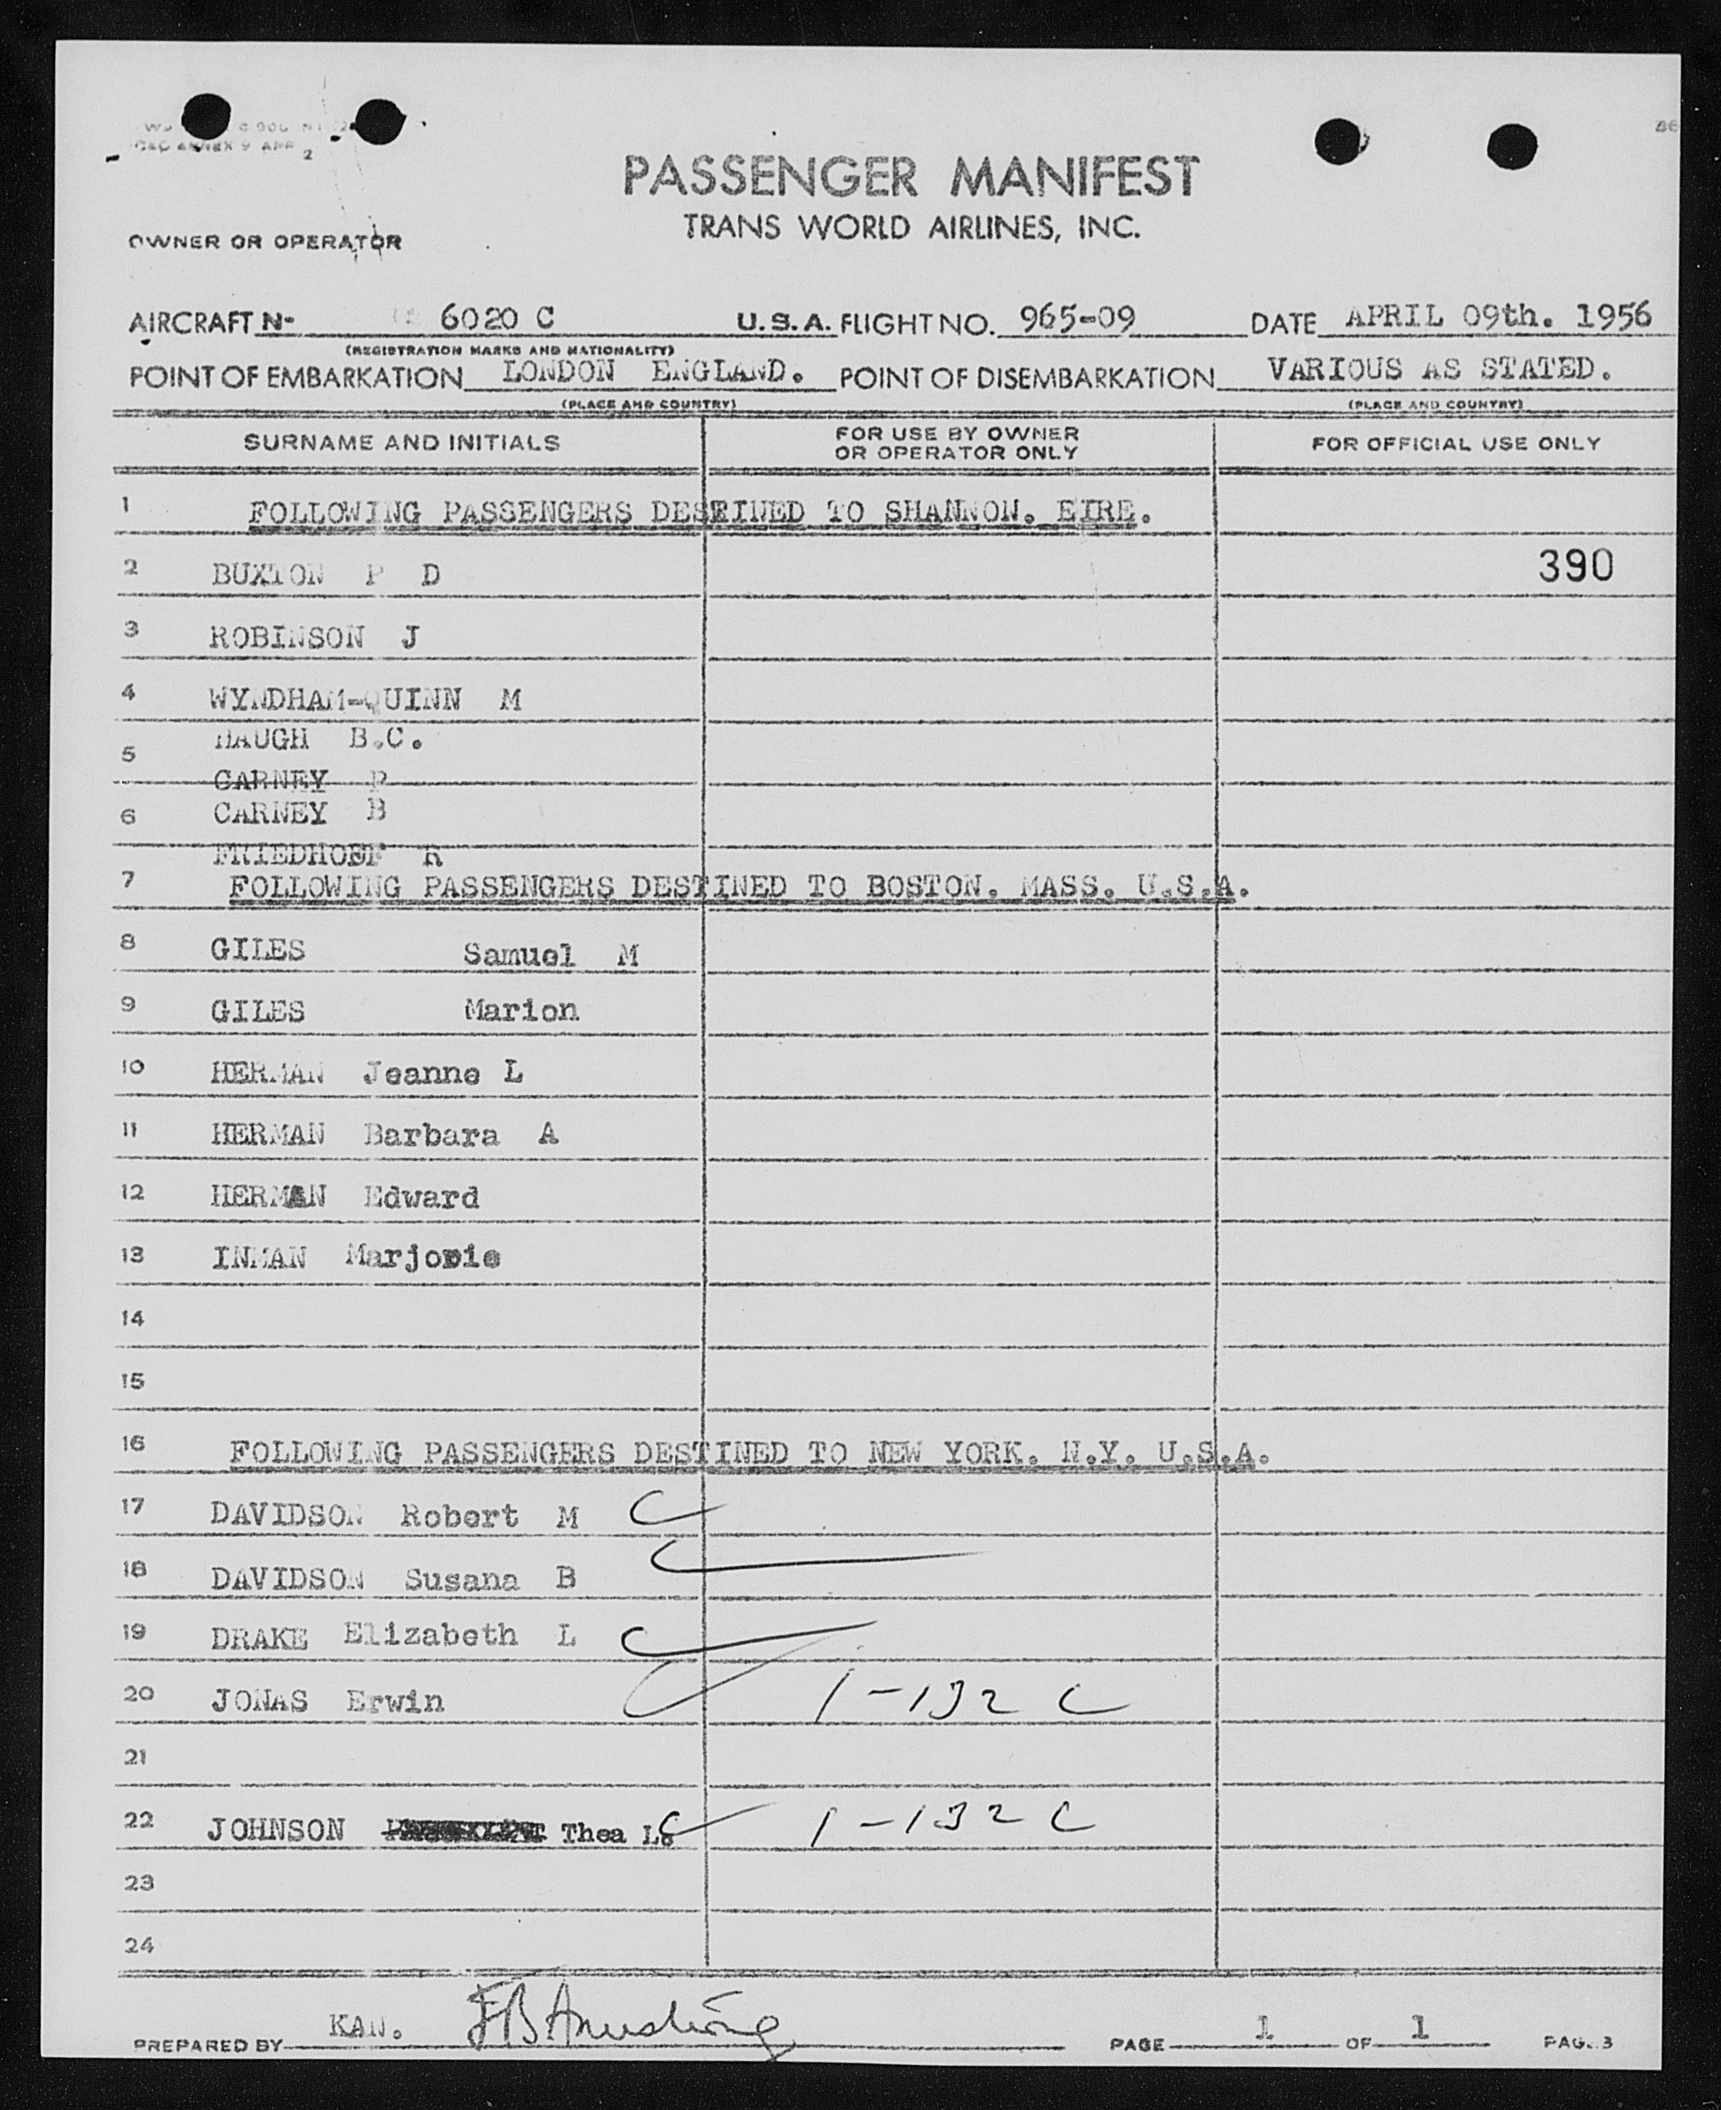 PASSENGER MANIFEST
TRANS WORLD AIRLINES, INC.
OWNER OR OPERATOR
AIRCRAFT N- 6020 C U.S.A. FLIGHT NO. 965-09 DATE APRIL 09th. 1956
(REGISTRATION MARKS AND NATIONALITY)
POINT OF EMBARKATION LONDON ENGLAND. POINT OF DISEMBARKATION VARIOUS AS STATED.
(PLACE AND COUNTRY) (PLACE AND COUNTRY)
SURNAME AND INITIALS FOR USE BY OWNER OR OPERATOR ONLY FOR OFFICIAL USE ONLY
1 FOLLOWING PASSENGERS DESTINED TO SHANNON. EIRE.
2 BUXTON P D 390
3 ROBINSON J
4 WYNDHAM-QUINN M
5 HAUGH B.C.
CARNEY P
6 CARNEY B
FRIEDHOFF R
7 FOLLOWING PASSENGERS DESTINED TO BOSTON. MASS. U.S.A.
8 GILES Samuel M
9 GILES Marion
10 HERMAN Jeanne L
11 HERMAN Barbara A
12 HERMAN Edward
13 INMAN Marjorie
14
15
16 FOLLOWING PASSENGERS DESTINED TO NEW YORK. N.Y. U.S.A.
17 DAVIDSON Robert M C
18 DAVIDSON Susana B C
19 DRAKE Elizabeth L C
20 JONAS Erwin C 1-132 C
21
22 JOHNSON Thea L C 1-132 C
23
24
PREPARED BY KAN. PAGE 1 OF 1 PAG. 3